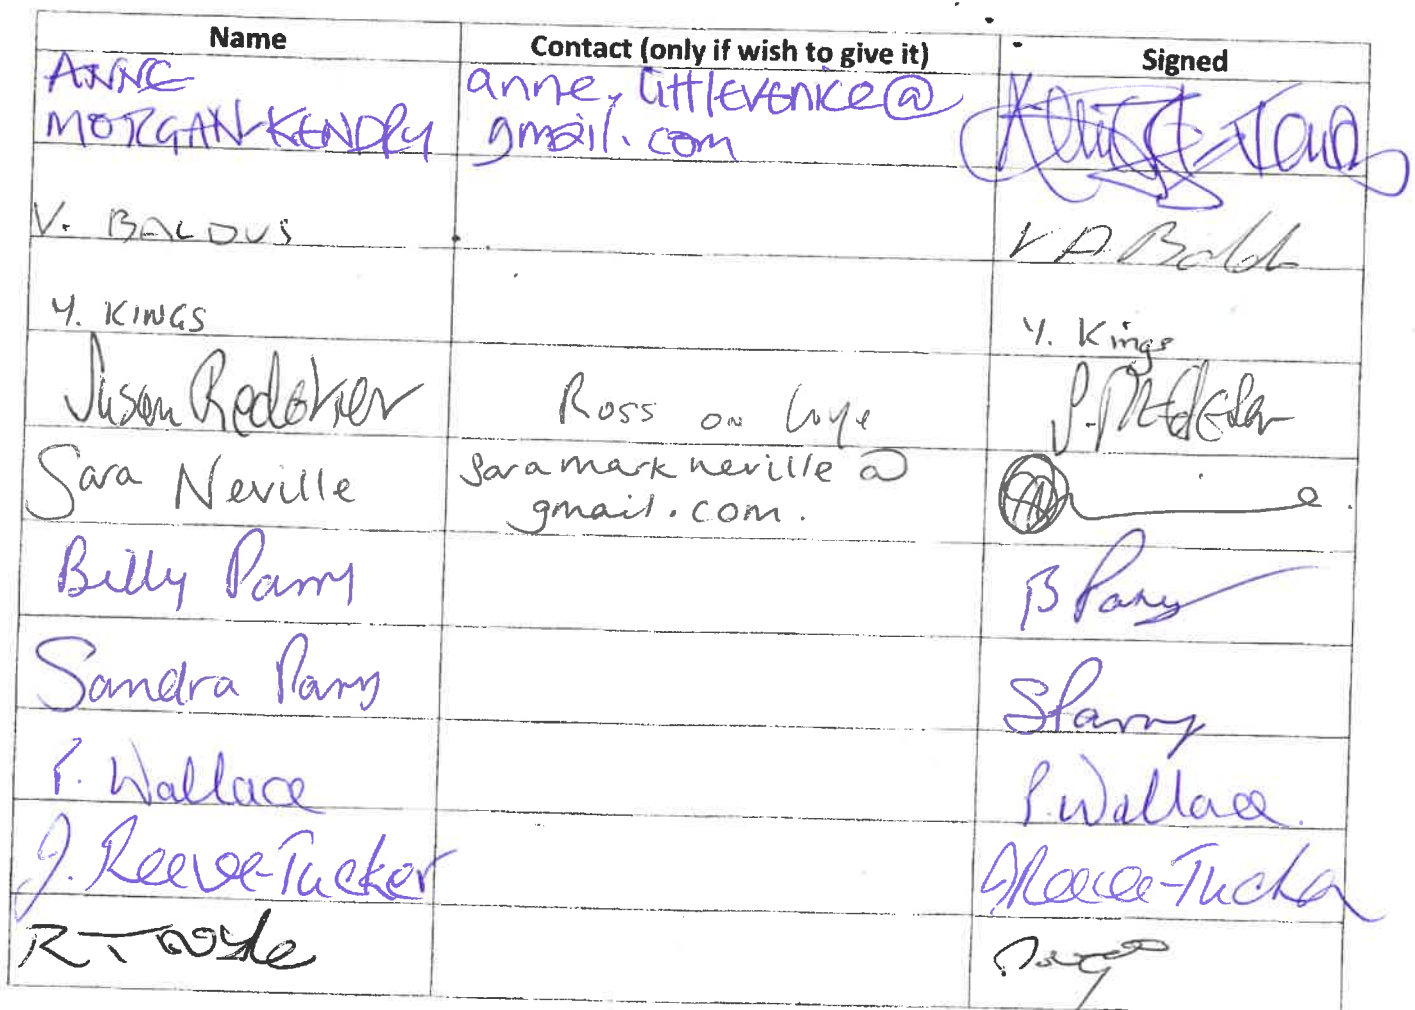 Name Contact (only if wish to give it) Signed
ANNE anne.littlevenice@
MORGAN-KENDRY gmail.com
V. BALDUS V A Bald
Y. KINGS Y. Kings
Susan Redeker Ross on Wye
Sara Neville saramarkneville@
gmail.com.
Billy Parry B Parry
Sandra Parry S Parry
P. Wallace P. Wallace.
J. Reeve-Tucker J Reeve-Tucker
R